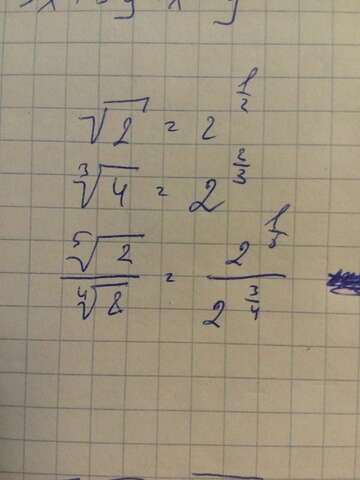 √2 = 2^{1/2}
∛4 = 2^{2/3}
⁵√2 / ⁴√8 = 2^{1/5} / 2^{3/4}